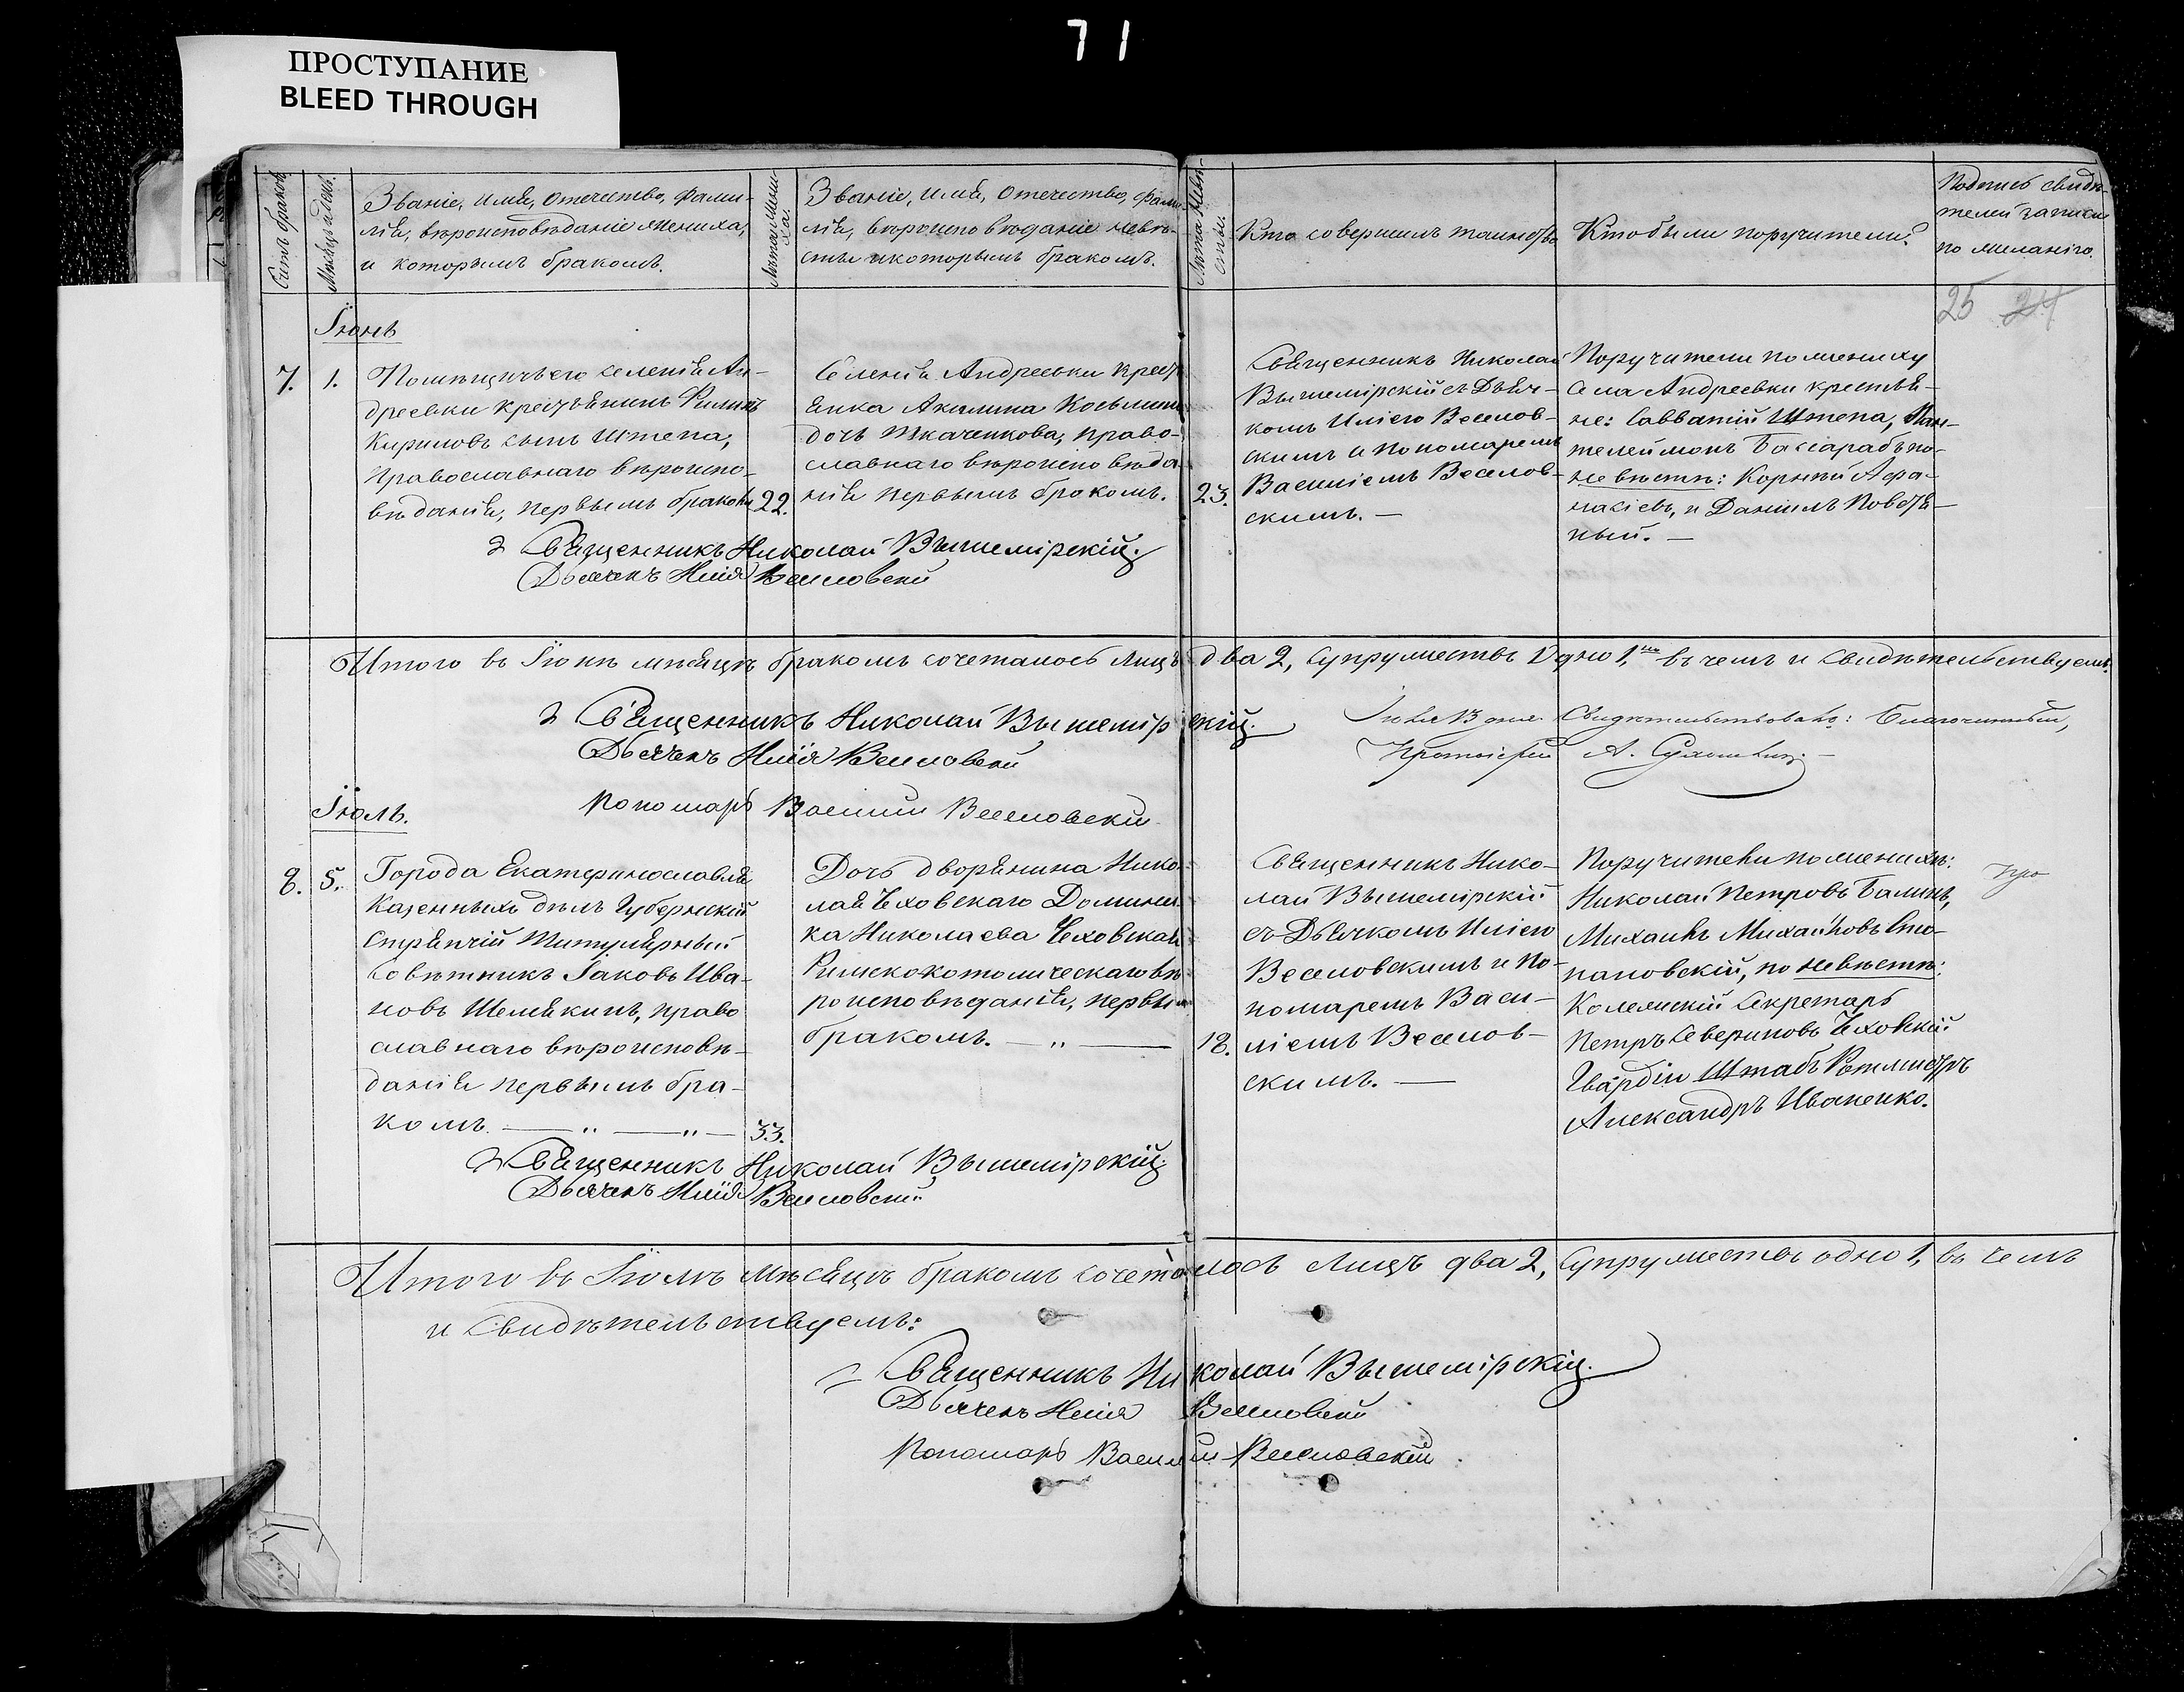 71
ПРОСТУПАНИЕ
BLEED THROUGH
Счетъ браковъ.
Мѣсяцъ и день.
Званіе, имя, отчество, фами-
лія, вѣроисповѣданіе жениха,
и которымъ бракомъ.
Лѣта жени-
ха.
Званіе, имя, отчество, фами-
лія, вѣроисповѣданіе невѣ-
сты и которымъ бракомъ.
Лѣта невѣ-
сты.
Кто совершилъ таинство
Кто были поручители?
Подпись свидѣ-
телей записи
по желанію.
25 24
Іюнь
7. 1.
Помѣщичьего селенія Ан-
дреевки крестьянинъ Филипъ
Кириловъ сынъ Штепа,
православнаго вѣроиспо-
вѣданія, первымъ бракомъ
22.
Селенія Андреевки крест
янка Акилина Косьмина
дочь Ткаченкова, право-
славнаго вѣроисповѣда
нія первымъ бракомъ.
23.
Священникъ Николай
Вышемірскій съ Дьяч-
комъ Иліею Веселов-
скимъ и пономаремъ
Василіемъ Веселов-
скимъ. —
Поручители по жениху
села Андреевки крестья-
не: Савватій Штепа, Пан-
телеймонъ Бассарабъ по-
невѣстѣ: Корнѣй Афа-
насіевъ, и Даніилъ Повстя-
ный. —
Священникъ Николай Вышемірскій.
Дьячекъ Илія Веселовскій
Итого въ Іюнѣ мѣсяцѣ бракомъ сочеталось лицъ два 2, супружествъ одно 1, въ чемъ и свидѣтельствуемъ.
Священникъ Николай Вышемірскій.
Дьячекъ Илія Веселовскій
Пономарь Василій Веселовскій
Свидѣтельствовалъ: Благочинный,
Протоіерей А.
Іюль.
8. 5.
Города Екатеринославля
Казенныхъ дѣлъ Губернскій
Стряпчій Титулярный
Совѣтникъ Іаковъ Ива-
новъ Шемякинъ, право
славнаго вѣроисповѣ-
данія первымъ бра-
комъ. — „ — „ —
33.
Дочь дворянина Нико-
лая Чеховскаго Домини-
ка Николаева Чеховская
Римскокатолическаго вѣ
роисповѣданія, первым
бракомъ. — „ —
18.
Священникъ Нико-
лай Вышемірскій
съ Дьячкомъ Иліею
Веселовскимъ и по-
номаремъ Васи-
ліемъ Веселов-
скимъ. —
Поручители по женихѣ:
Николай Петровъ Балинъ,
Михаилъ Михайловъ Сто-
пановскій, по невѣстѣ:
Колежскій Секретарь
Петръ Севериновъ Чеховскій
Гвардіи Штабъ Ротмистръ
Александръ Иваненко.
Священникъ Николай Вышемірскій.
Дьячекъ Илія Веселовскій
Итого въ Іюлѣ мѣсяцѣ бракомъ сочеталось лицъ два 2, супружествъ одно 1, въ чемъ
и свидѣтельствуемъ:
Священникъ Николай Вышемірскій.
Дьячекъ Илія Веселовскій
Пономарь Василій Веселовскій